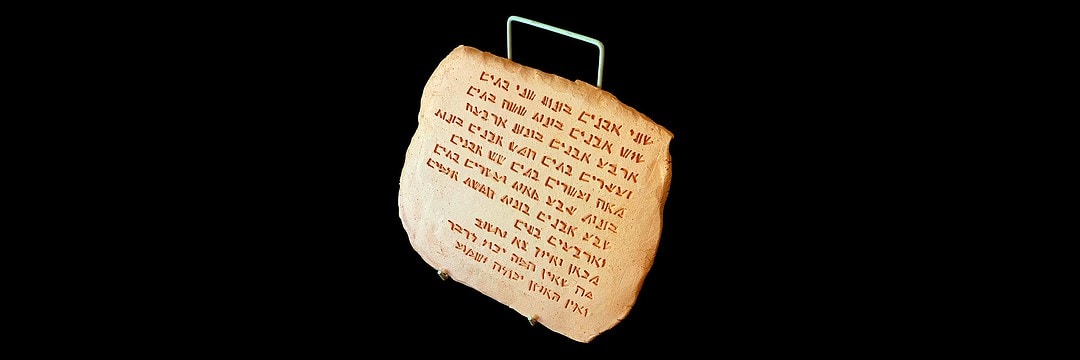 שתי אבנים בונות שני בתים
שלש אבנים בונות ששה בתים
ארבע אבנים בונות ארבעה
ועשרים בתים חמש אבנים בונות
מאה ועשרים בתים שש אבנים
בונות שבע מאות ועשרים בתים
שבע אבנים בונות חמשת אלפים
וארבעים בתים
מכאן ואילך צא וחשוב
מה שאין הפה יכול לדבר
ואין האוזן יכולה לשמוע